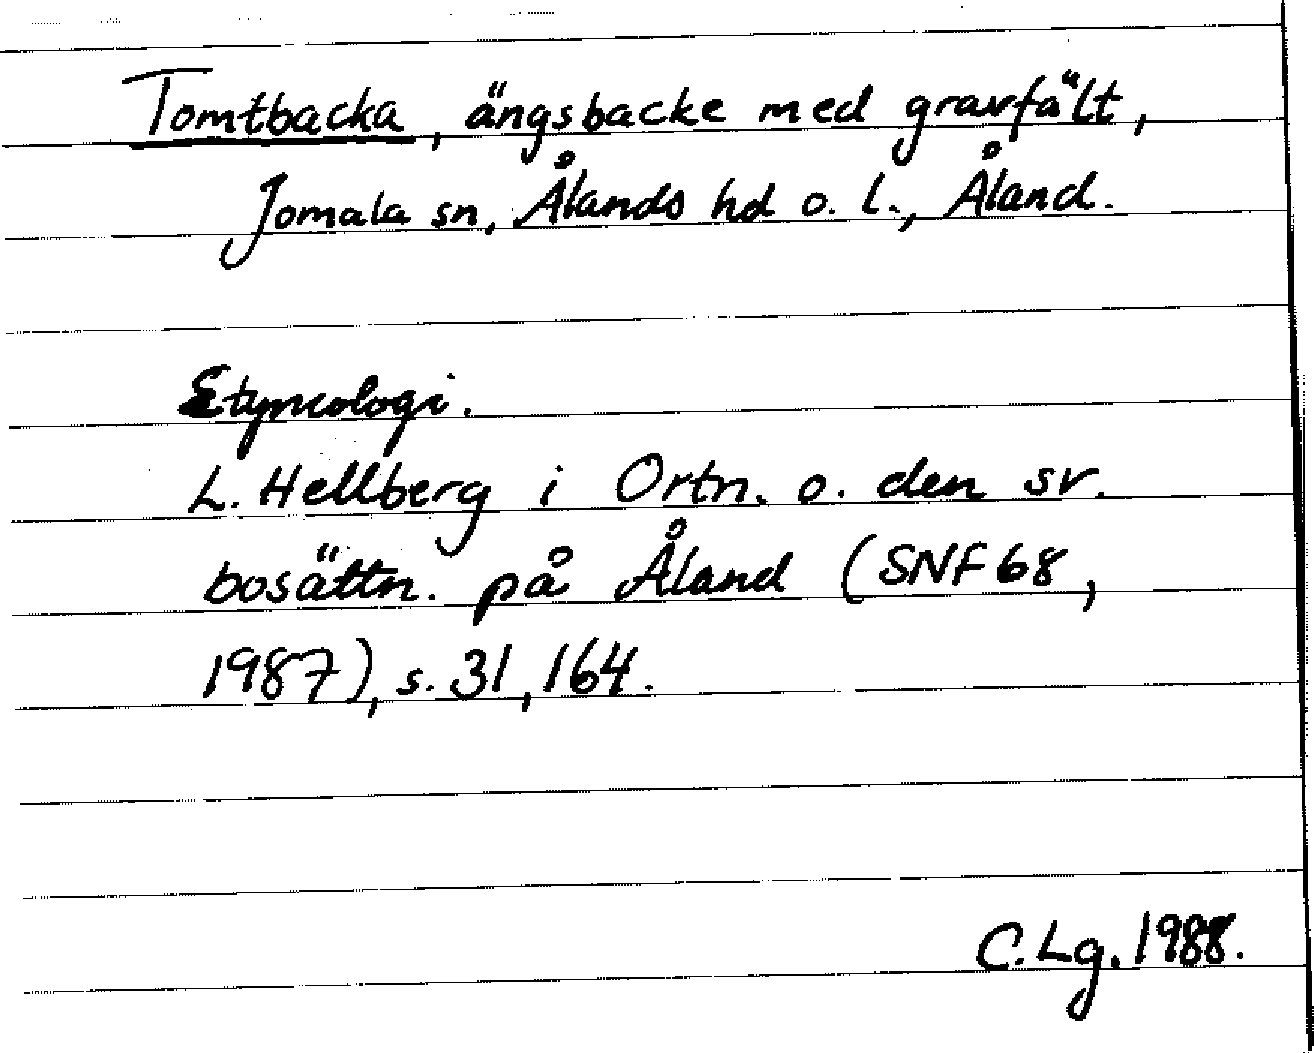 Tomtbacka, ängsbacke med gravfält,
Jomala sn, Ålands hd o. l., Åland.
Etymologi.
L. Hellberg i Ortn. o. den sv.
bosättn. på Åland (SNF 68,
1987), s. 31, 164.
C. Lg. 1988.